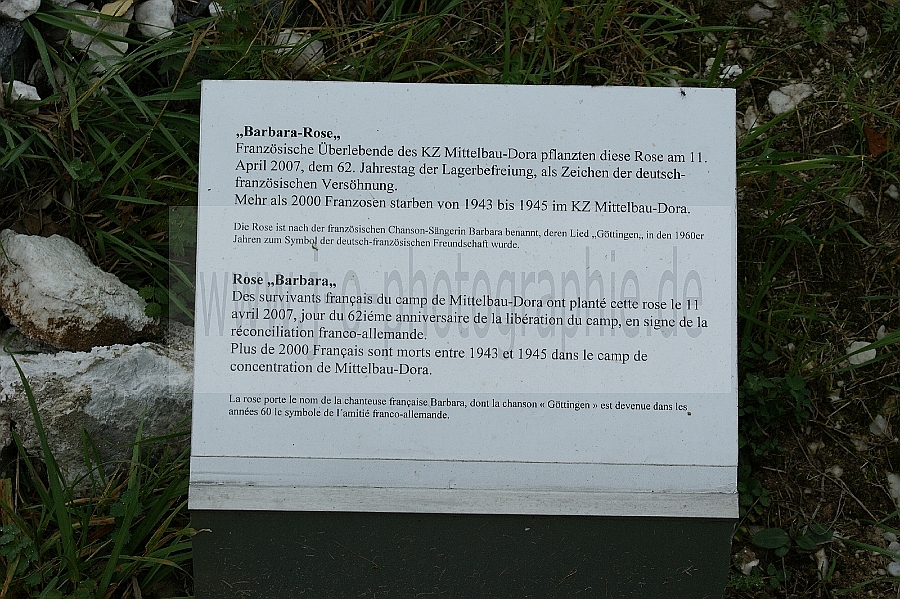 „Barbara-Rose„
Französische Überlebende des KZ Mittelbau-Dora pflanzten diese Rose am 11.
April 2007, dem 62. Jahrestag der Lagerbefreiung, als Zeichen der deutsch-
französischen Versöhnung.
Mehr als 2000 Franzosen starben von 1943 bis 1945 im KZ Mittelbau-Dora.
Die Rose ist nach der französischen Chanson-Sängerin Barbara benannt, deren Lied „Göttingen„ in den 1960er
Jahren zum Symbol der deutsch-französischen Freundschaft wurde.
Rose „Barbara„
Des survivants français du camp de Mittelbau-Dora ont planté cette rose le 11
avril 2007, jour du 62iéme anniversaire de la libération du camp, en signe de la
réconciliation franco-allemande.
Plus de 2000 Français sont morts entre 1943 et 1945 dans le camp de
concentration de Mittelbau-Dora.
La rose porte le nom de la chanteuse française Barbara, dont la chanson « Göttingen » est devenue dans les
années 60 le symbole de l´amitié franco-allemande.